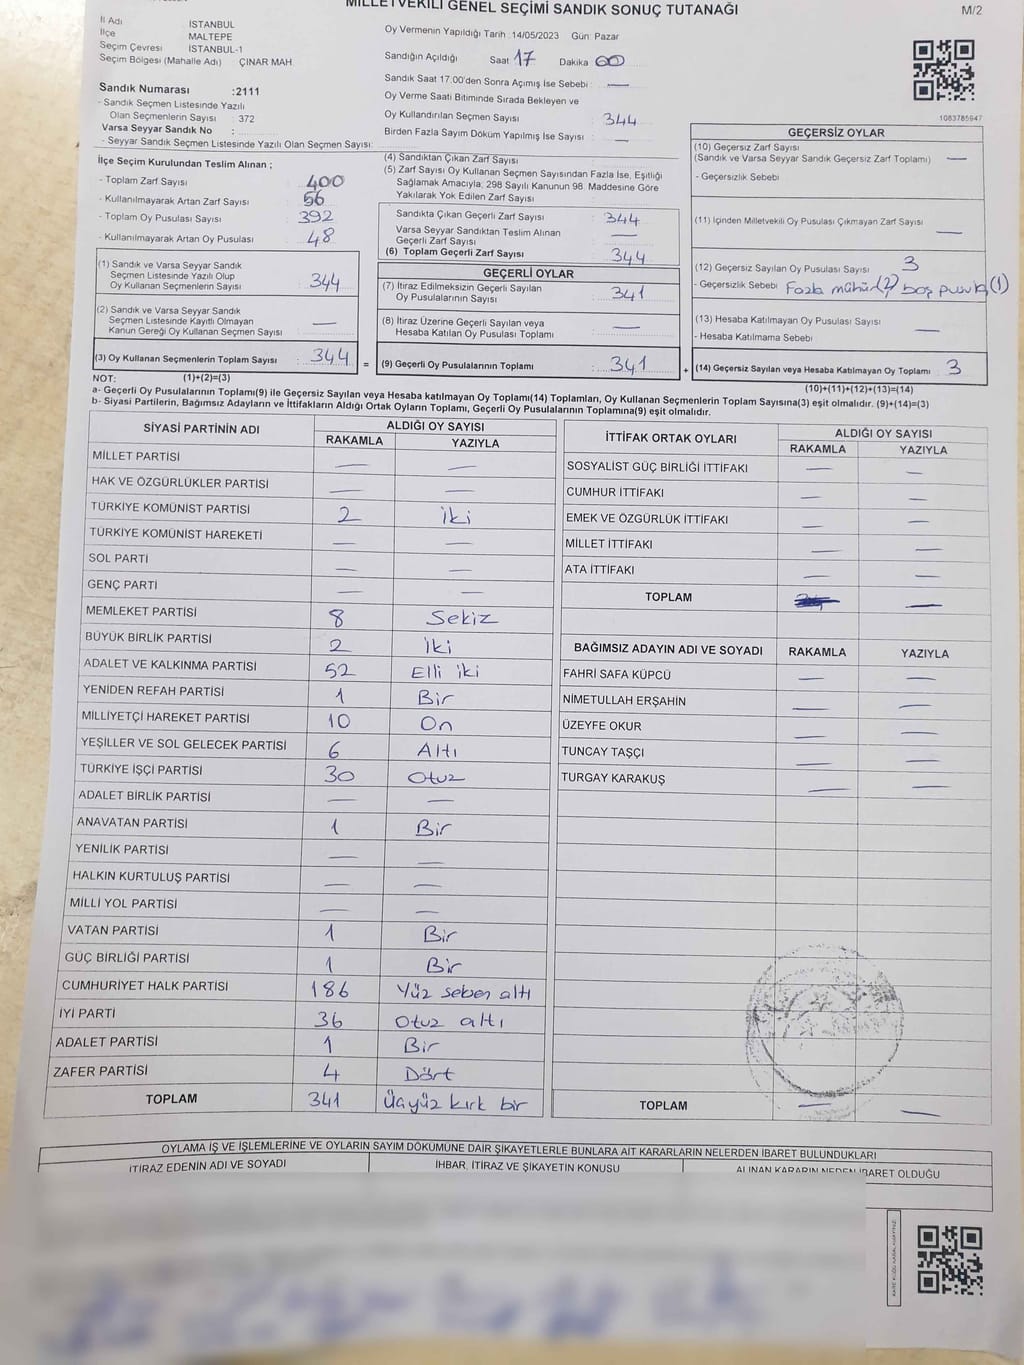 MİLLETVEKİLİ GENEL SEÇİMİ SANDIK SONUÇ TUTANAĞI
M/2
İl Adı İSTANBUL
İlçe MALTEPE
Seçim Çevresi İSTANBUL-1
Seçim Bölgesi (Mahalle Adı) ÇINAR MAH.
Oy Vermenin Yapıldığı Tarih :14/05/2023 Gün: Pazar
Sandığın Açıldığı Saat 17 Dakika 00
Sandık Saat 17:00'den Sonra Açımış İse Sebebi : —
Oy Verme Saati Bitiminde Sırada Bekleyen ve
Oy Kullandırılan Seçmen Sayısı : 344
Birden Fazla Sayım Döküm Yapılmış İse Sayısı : —
1083785947
Sandık Numarası :2111
- Sandık Seçmen Listesinde Yazılı
Olan Seçmenlerin Sayısı : 372
Varsa Seyyar Sandık No :
- Seyyar Sandık Seçmen Listesinde Yazılı Olan Seçmen Sayısı:
İlçe Seçim Kurulundan Teslim Alınan ;
- Toplam Zarf Sayısı : 400
- Kullanılmayarak Artan Zarf Sayısı : 56
- Toplam Oy Pusulası Sayısı : 392
- Kullanılmayarak Artan Oy Pusulası : 48
(1) Sandık ve Varsa Seyyar Sandık
Seçmen Listesinde Yazılı Olup
Oy Kullanan Seçmenlerin Sayısı : 344
(2) Sandık ve Varsa Seyyar Sandık
Seçmen Listesinde Kayıtlı Olmayan
Kanun Gereği Oy Kullanan Seçmen Sayısı : —
(3) Oy Kullanan Seçmenlerin Toplam Sayısı : 344 =
(4) Sandıktan Çıkan Zarf Sayısı :
(5) Zarf Sayısı Oy Kullanan Seçmen Sayısından Fazla İse, Eşitliği
Sağlamak Amacıyla, 298 Sayılı Kanunun 98. Maddesine Göre
Yakılarak Yok Edilen Zarf Sayısı :
Sandıkta Çıkan Geçerli Zarf Sayısı : 344
Varsa Seyyar Sandıktan Teslim Alınan
Geçerli Zarf Sayısı : —
(6) Toplam Geçerli Zarf Sayısı : 344
GEÇERLİ OYLAR
(7) İtiraz Edilmeksizin Geçerli Sayılan
Oy Pusulalarının Sayısı : 341
(8) İtiraz Üzerine Geçerli Sayılan veya
Hesaba Katılan Oy Pusulaları Toplamı : —
(9) Geçerli Oy Pusulalarının Toplamı : 341 +
GEÇERSİZ OYLAR
(10) Geçersiz Zarf Sayısı
(Sandık ve Varsa Seyyar Sandık Geçersiz Zarf Toplamı) : —
- Geçersizlik Sebebi :
(11) İçinden Milletvekili Oy Pusulası Çıkmayan Zarf Sayısı : —
(12) Geçersiz Sayılan Oy Pusulası Sayısı : 3
- Geçersizlik Sebebi : Fazla mühür(2) boş pusula(1)
(13) Hesaba Katılmayan Oy Pusulası Sayısı : —
- Hesaba Katılmama Sebebi :
(14) Geçersiz Sayılan veya Hesaba Katılmayan Oy Toplamı : 3
NOT: (1)+(2)=(3)
(10)+(11)+(12)+(13)=(14)
a- Geçerli Oy Pusulalarının Toplamı(9) ile Geçersiz Sayılan veya Hesaba katılmayan Oy Toplamı(14) Toplamları, Oy Kullanan Seçmenlerin Toplam Sayısına(3) eşit olmalıdır. (9)+(14)=(3)
b- Siyasi Partilerin, Bağımsız Adayların ve İttifakların Aldığı Ortak Oyların Toplamı, Geçerli Oy Pusulalarının Toplamına(9) eşit olmalıdır.
SİYASİ PARTİNİN ADI ALDIĞI OY SAYISI
RAKAMLA YAZIYLA
MİLLET PARTİSİ — —
HAK VE ÖZGÜRLÜKLER PARTİSİ — —
TÜRKİYE KOMÜNİST PARTİSİ 2 iki
TÜRKİYE KOMÜNİST HAREKETİ — —
SOL PARTİ — —
GENÇ PARTİ — —
MEMLEKET PARTİSİ 8 Sekiz
BÜYÜK BİRLİK PARTİSİ 2 İki
ADALET VE KALKINMA PARTİSİ 52 Elli iki
YENİDEN REFAH PARTİSİ 1 Bir
MİLLİYETÇİ HAREKET PARTİSİ 10 On
YEŞİLLER VE SOL GELECEK PARTİSİ 6 Altı
TÜRKİYE İŞÇİ PARTİSİ 30 Otuz
ADALET BİRLİK PARTİSİ — —
ANAVATAN PARTİSİ 1 Bir
YENİLİK PARTİSİ — —
HALKIN KURTULUŞ PARTİSİ — —
MİLLİ YOL PARTİSİ — —
VATAN PARTİSİ 1 Bir
GÜÇ BİRLİĞİ PARTİSİ 1 Bir
CUMHURİYET HALK PARTİSİ 186 Yüz seksen altı
İYİ PARTİ 36 Otuz altı
ADALET PARTİSİ 1 Bir
ZAFER PARTİSİ 4 Dört
TOPLAM 341 Üçyüz kırk bir
İTTİFAK ORTAK OYLARI ALDIĞI OY SAYISI
RAKAMLA YAZIYLA
SOSYALİST GÜÇ BİRLİĞİ İTTİFAKI — —
CUMHUR İTTİFAKI — —
EMEK VE ÖZGÜRLÜK İTTİFAKI — —
MİLLET İTTİFAKI — —
ATA İTTİFAKI — —
TOPLAM —
BAĞIMSIZ ADAYIN ADI VE SOYADI RAKAMLA YAZIYLA
FAHRİ SAFA KÜPCÜ — —
NİMETULLAH ERŞAHİN — —
ÜZEYFE OKUR — —
TUNCAY TAŞÇI — —
TURGAY KARAKUŞ — —
TOPLAM — —
OYLAMA İŞ VE İŞLEMLERİNE VE OYLARIN SAYIM DÖKÜMÜNE DAİR ŞİKAYETLERLE BUNLARA AİT KARARLARIN NELERDEN İBARET BULUNDUKLARI
İTİRAZ EDENİN ADI VE SOYADI İHBAR, İTİRAZ VE ŞİKAYETİN KONUSU ALINAN KARARIN NEDEN İBARET OLDUĞU